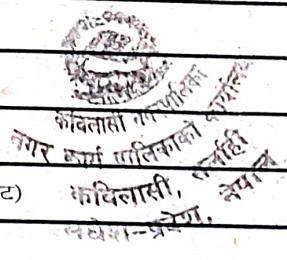 कविलासी नगरपालिका
नगर कार्य पालिकाको कार्यालय
ट) कविलासी, सर्लाही
मधेश-प्रदेश, नेपाल